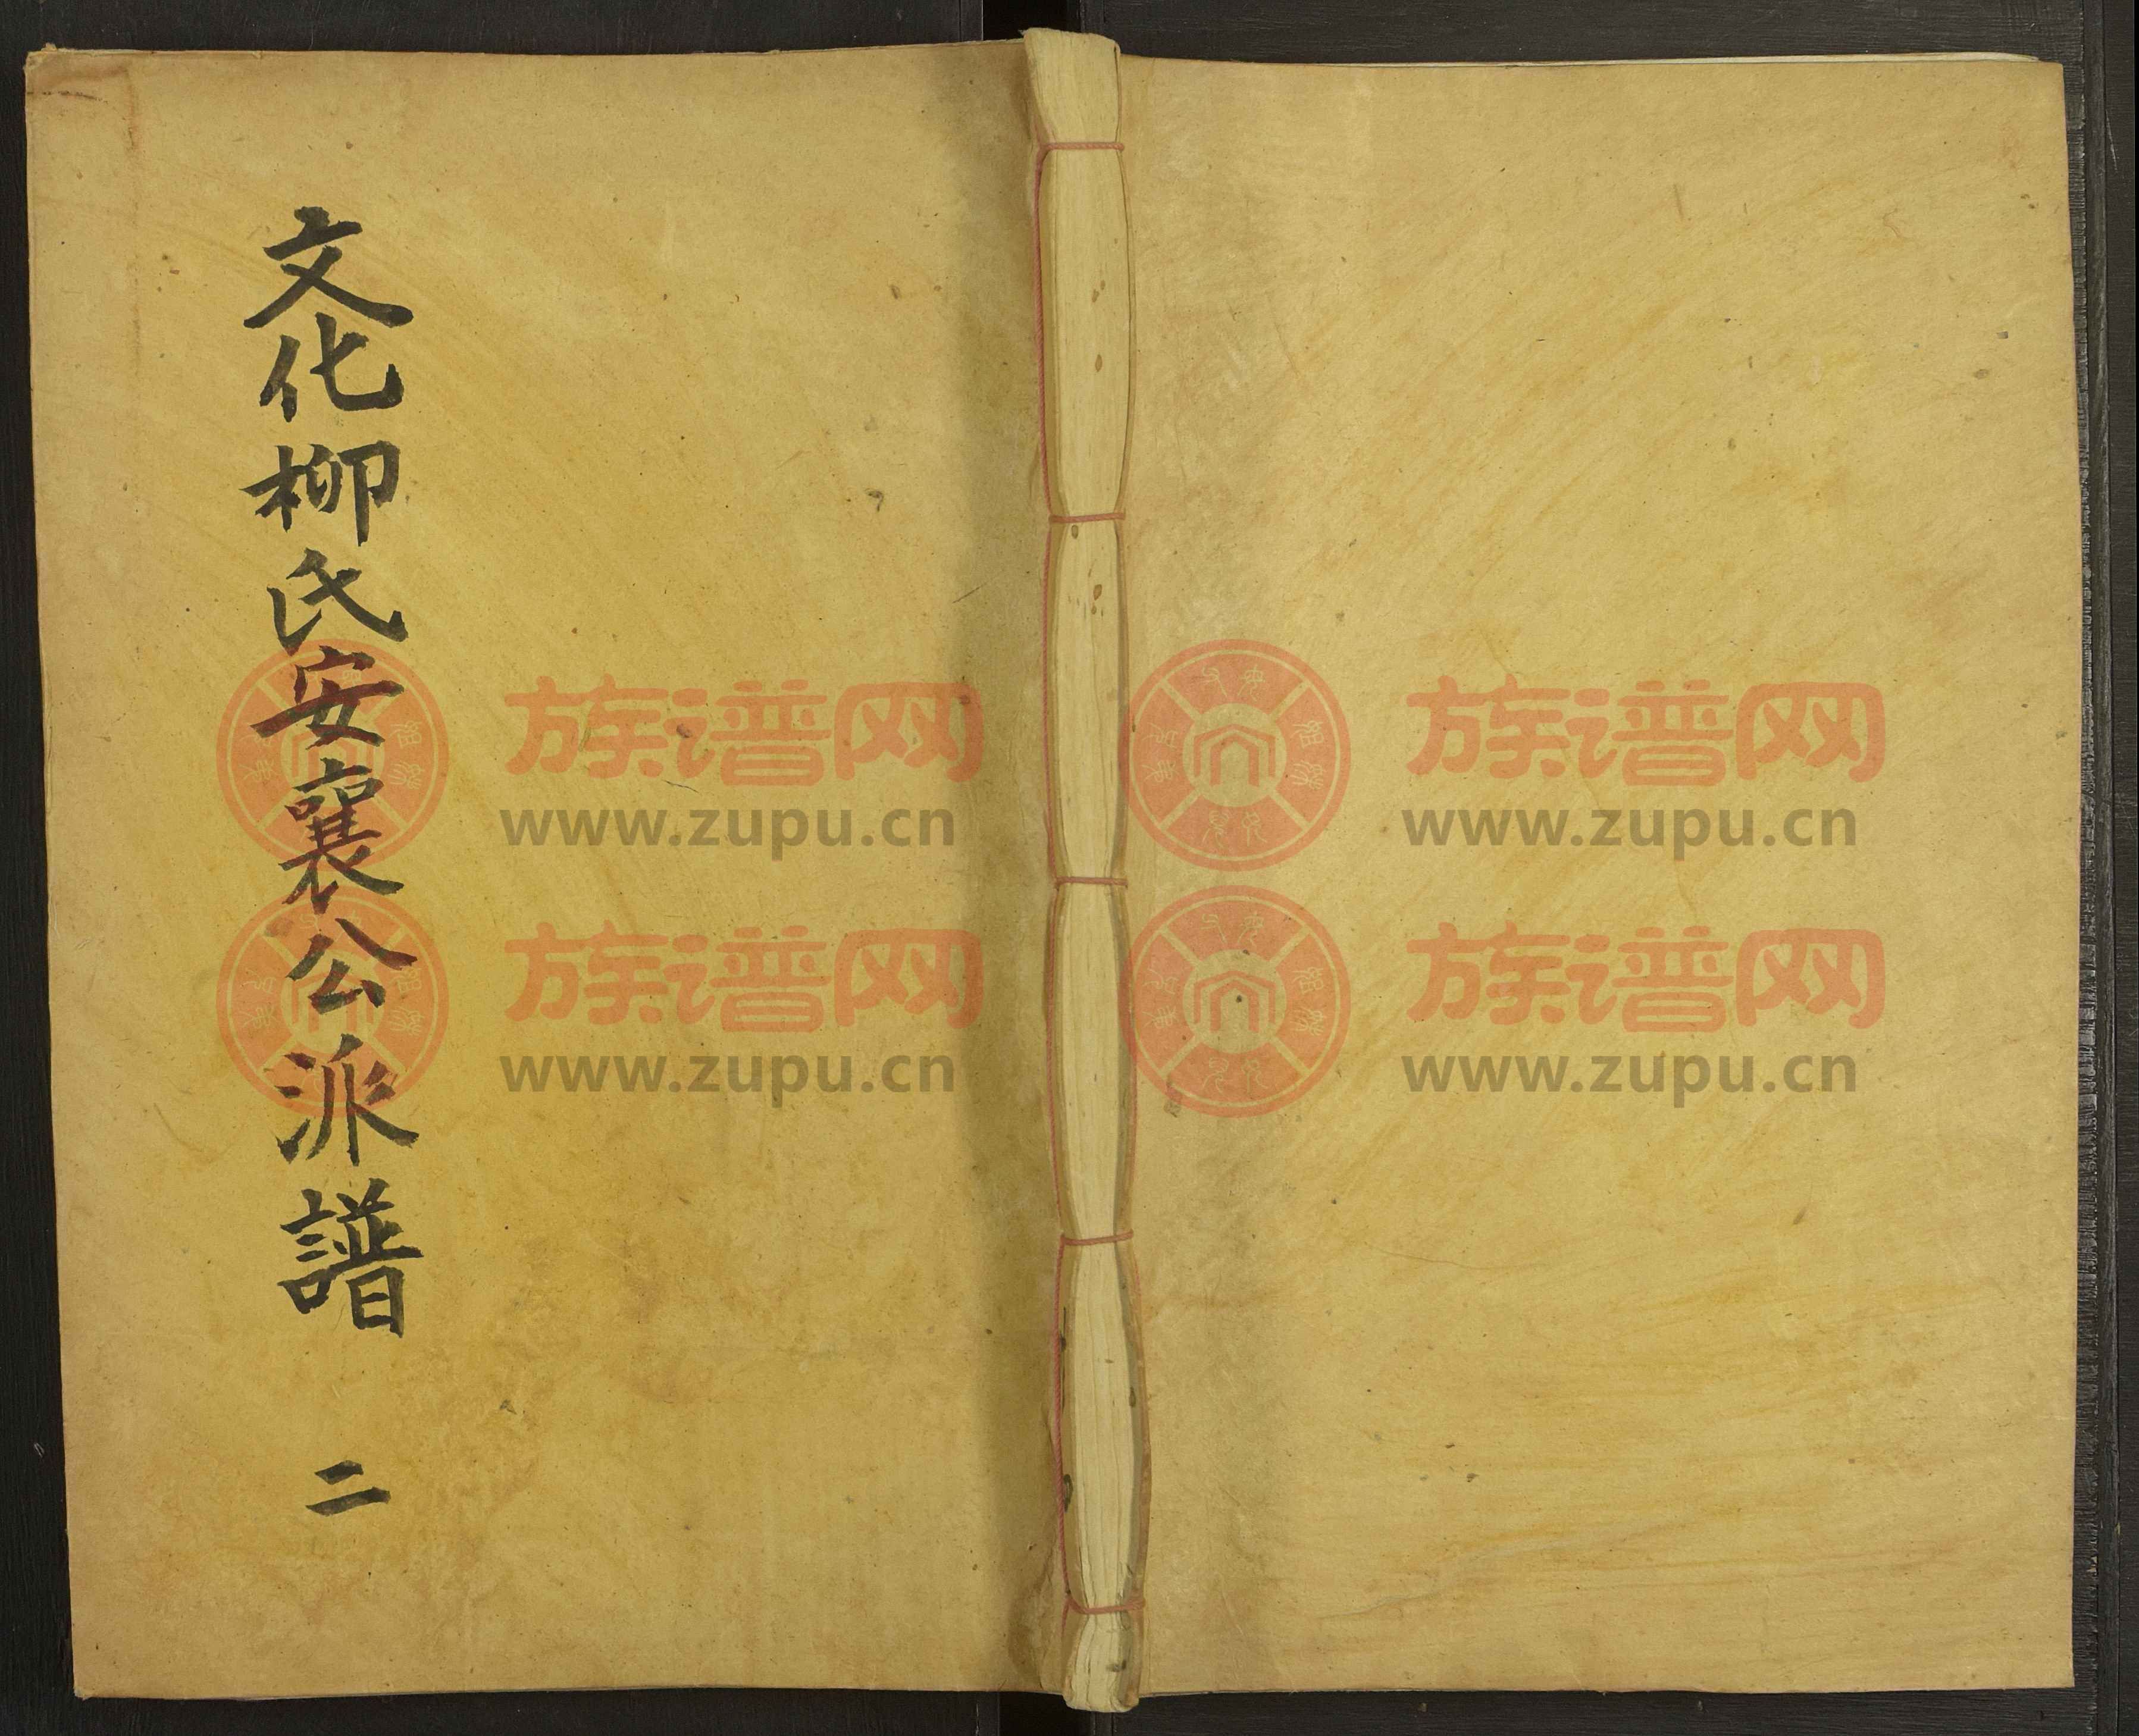 文化柳氏安襄公派譜 二
族谱网
www.zupu.cn
族谱网
www.zupu.cn
族谱网
www.zupu.cn
族谱网
www.zupu.cn